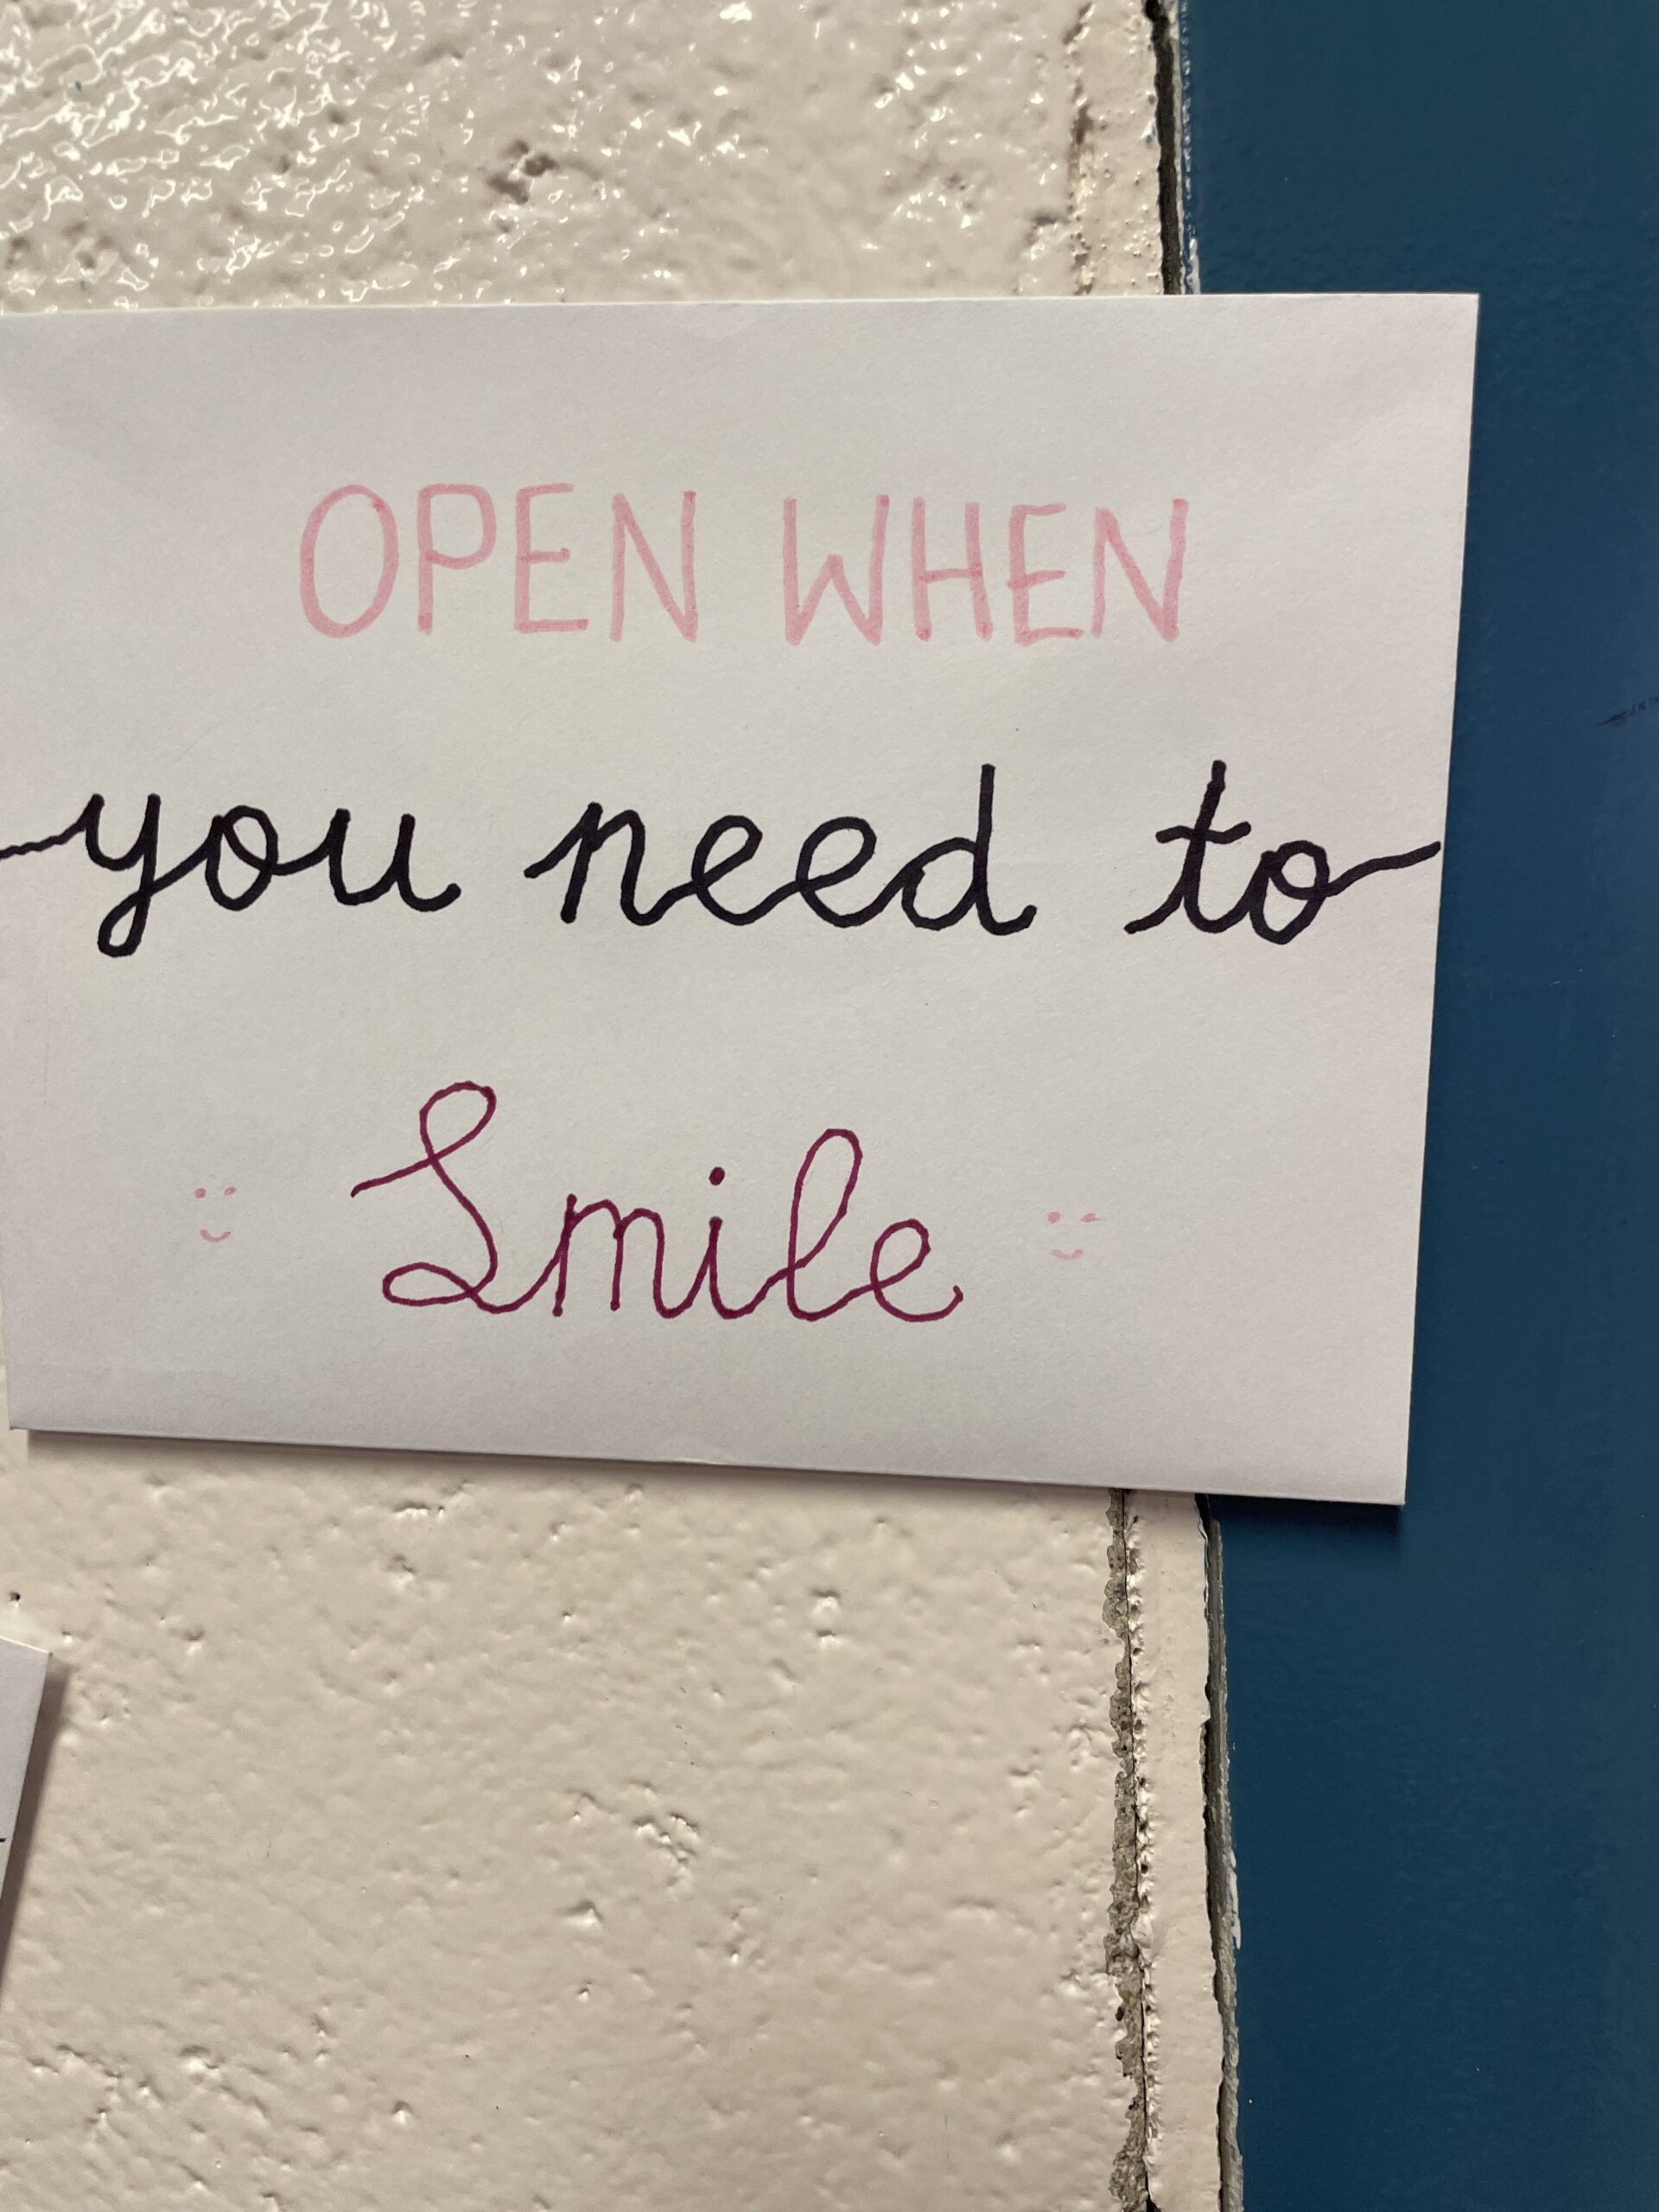 OPEN WHEN
you need to
Smile